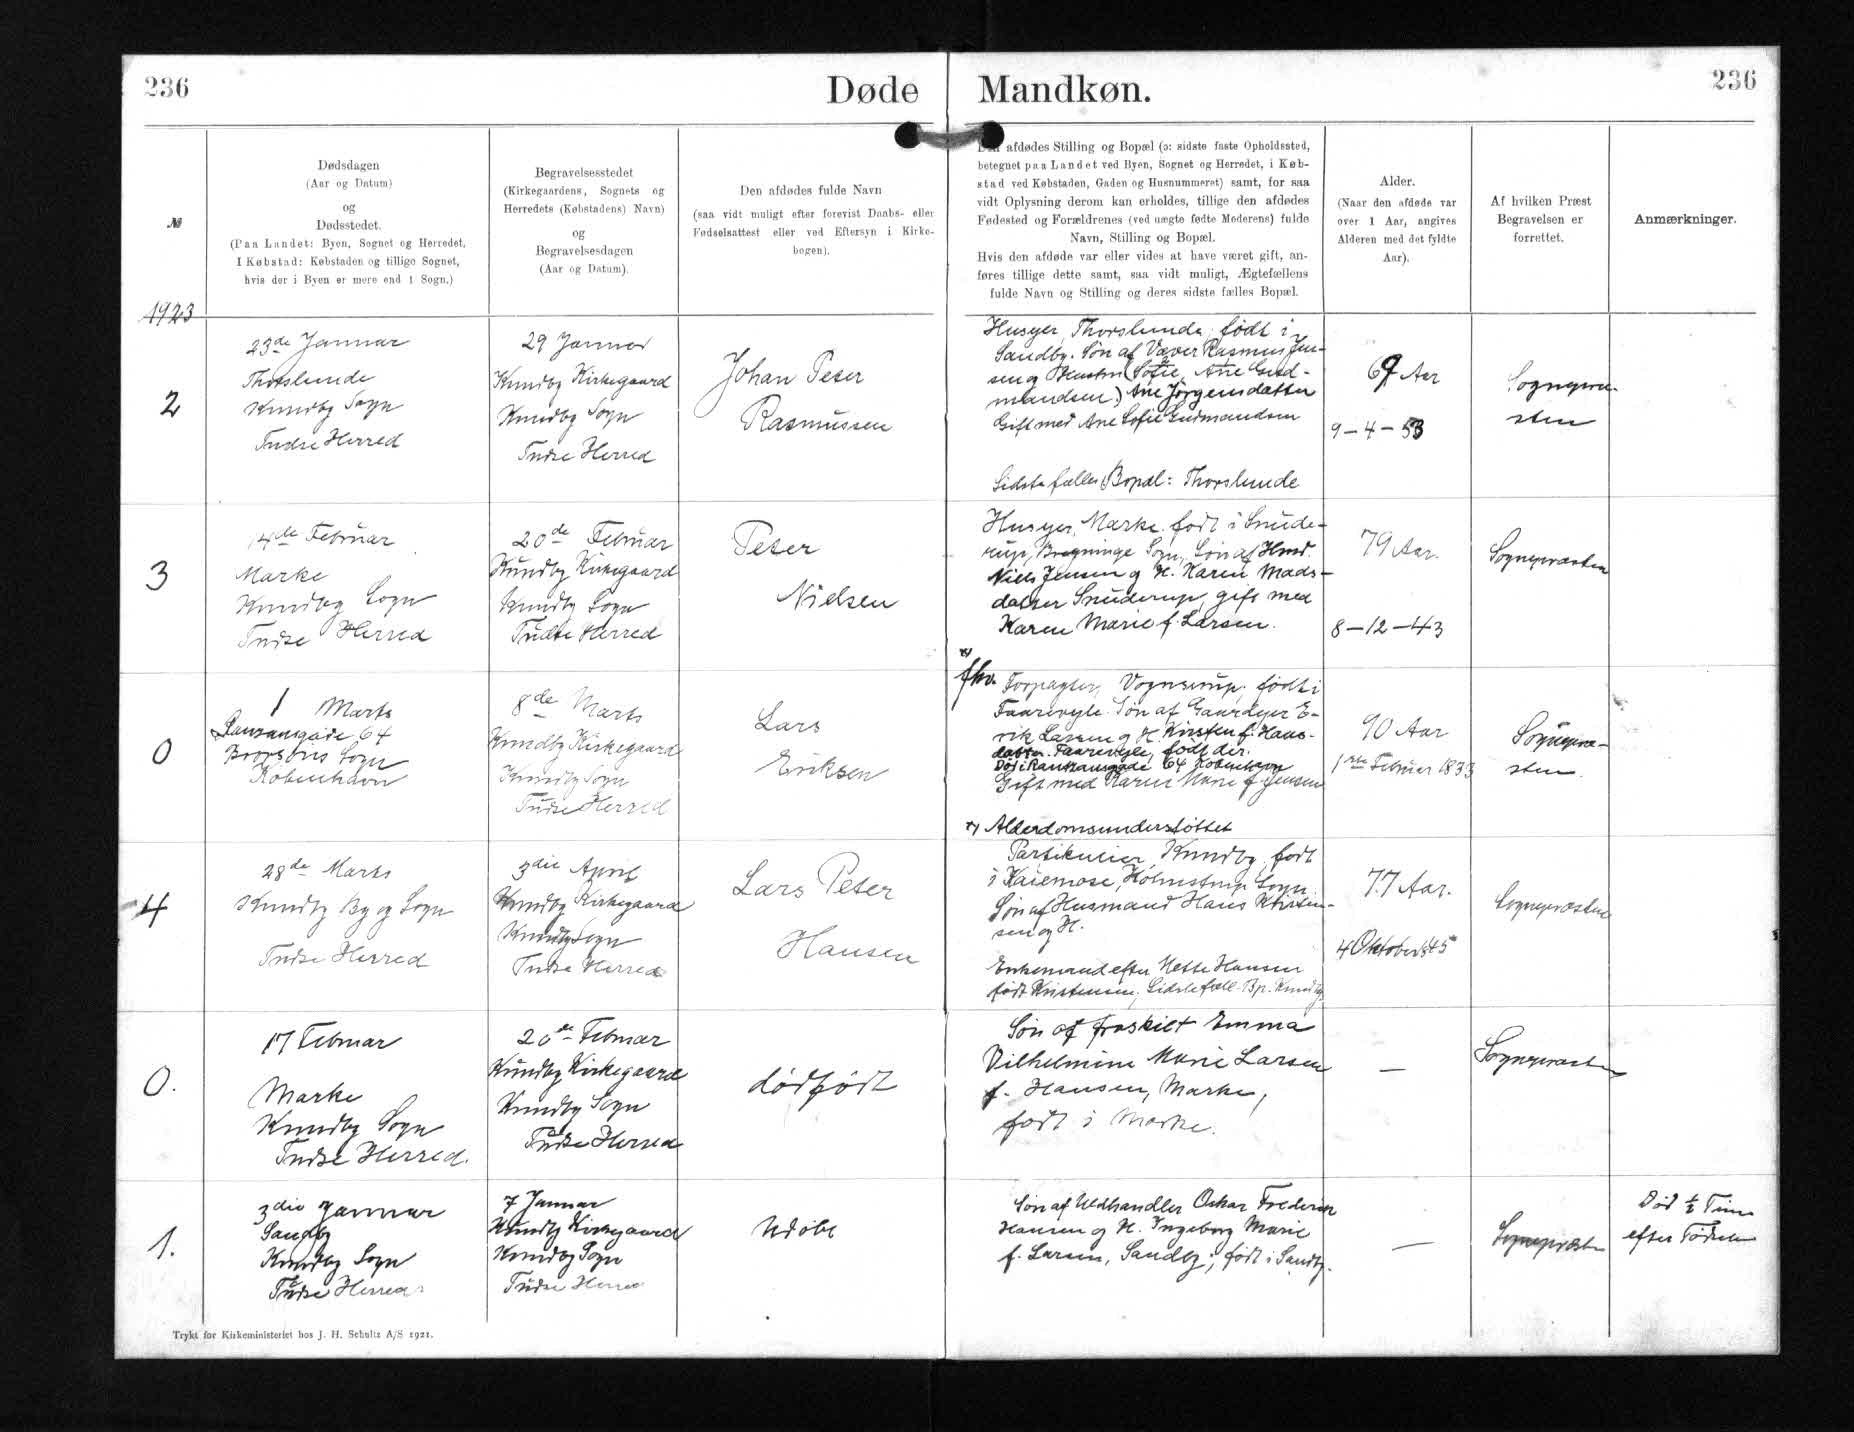 236
Døde Mandkøn.
236
№
Dødsdagen
(Aar og Datum)
og
Dødsstedet.
(Paa Landet: Byen, Sognet og Herredet,
I Købstad: Købstaden og tillige Sognet,
hvis der i Byen er mere end 1 Sogn.)
Begravelsesstedet
(Kirkegaardens, Sognets og
Herredets (Købstadens) Navn)
og
Begravelsesdagen
(Aar og Datum).
Den afdødes fulde Navn
(saa vidt muligt efter forevist Daabs- eller
Fødselsattest eller ved Eftersyn i Kirke-
bogen).
afdødes Stilling og Bopæl (ɔ: sidste faste Opholdssted,
betegnet paa Landet ved Byen, Sognet og Herredet, i Køb-
stad ved Købstaden, Gaden og Husnummeret) samt, for saa
vidt Oplysning derom kan erholdes, tillige den afdødes
Fødested og Forældrenes (ved uægte fødte Moderens) fulde
Navn, Stilling og Bopæl.
Hvis den afdøde var eller vides at have været gift, an-
føres tillige dette samt, saa vidt muligt, Ægtefællens
fulde Navn og Stilling og deres sidste fælles Bopæl.
Alder.
(Naar den afdøde var
over 1 Aar, angives
Alderen med det fyldte
Aar).
Af hvilken Præst
Begravelsen er
forrettet.
Anmærkninger.
1923
2
23de Januar
Thorslunde
Kundby Sogn
Tudse Herred
29 Januar
Kundby Kirkegaard
Kundby Sogn
Tudse Herred
Johan Peter
Rasmussen
Husejer, Thorslunde, født i
Sandby. Søn af Væver Rasmus Jen-
sen og Hustru (Sofie, Ane Gud-
mandsen.) Ane Jørgensdatter
Gift med Ane Sofie Gudmandsen
Sidste fælles Bopæl: Thorslunde
69 Aar
9-4-53
Sognepræ-
sten
3
14de Februar
Marke
Kundby Sogn
Tudse Herred
20de Februar
Kundby Kirkegaard
Kundby Sogn
Tudse Herred
Peter
Nielsen
Husejer, Marke, født i Snude-
rup, Bregninge Sogn, Søn af Husm.
Niels Jensen og H. Karen Mads-
datter Snuderup, gift med
Karen Marie f. Larsen.
79 Aar.
8-12-43
Sognepræsten
0
1 Marts
Ranzausgade 64
Brorsons Sogn
København
8de Marts
Kundby Kirkegaard
Kundby Sogn
Tudse Herred
Lars
Eriksen
x)
fhv. Forpagter, Vognserup, født i
Faarevejle. Søn af Gaardejer E-
rik Larsen og H. Kirsten f. Hans-
datter. Faarevejle, født der.
Død i Rantzausgade 64 København
Gift med Karen Marie f. Jensen
x) Alderdomsunderstøttet
90 Aar
1ste Februar 1833
Sognepræ-
sten.
4
28de Marts
Kundby By og Sogn
Tudse Herred
3die April
Kundby Kirkegaard
Kundby Sogn
Tudse Herred
Lars Peter
Hansen
Partikulier, Kundby, født
i Kaiemose, Holmstrup Sogn
Søn af Husmand Hans Kristen-
sen og H.
Enkemand efter Mette Hansen
født Kristensen, Sidste fæll. Bp. Kundby
77 Aar.
4 Oktober 1845
Sognepræsten
0.
17 Februar
Marke
Kundby Sogn
Tudse Herred.
20de Februar
Kundby Kirkegaard
Kundby Sogn
Tudse Herred
dødfødt
Søn af fraskilt Emma
Vilhelmine Marie Larsen
f. Hansen, Marke,
født i Marke.
—
Sognepræsten
1.
3die Januar
Sandby
Kundby Sogn
Tudse Herred
7 Januar
Kundby Kirkegaard
Kundby Sogn
Tudse Herred
Udøbt
Søn af Uldhandler Oskar Frederik
Hansen og H. Ingeborg Marie
f. Larsen, Sandby, født i Sandby.
—
Sognepræsten
Død ½ Time
efter Fødselen
Trykt for Kirkeministeriet hos J. H. Schultz A/S 1921.